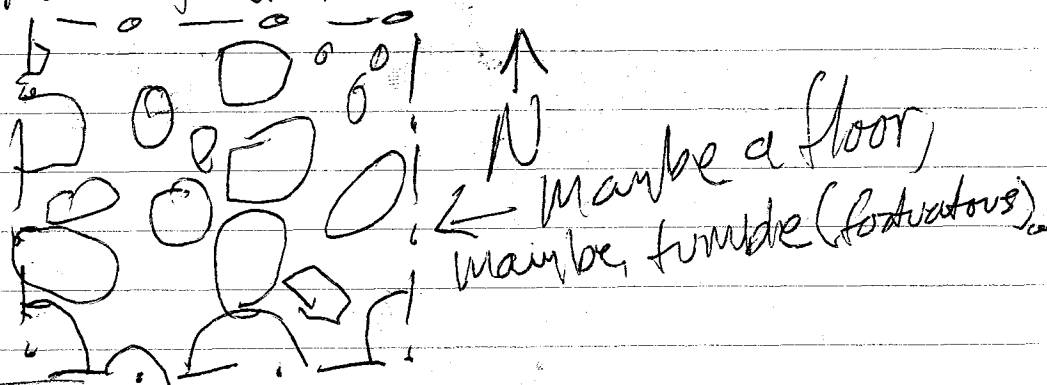 N
maybe a floor,
maybe, tumble (fortuatous).